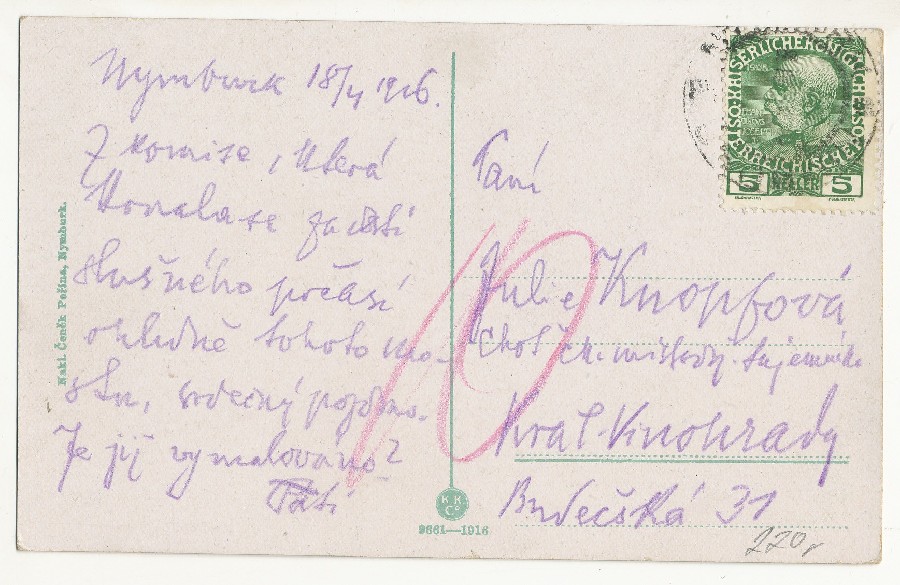 Nymburk 18/4 1916.
Z komise, která
konala se za
slušného počasí
ohledně tohoto mo-
stu, srdečný pozdrav.
Je již vymalováno?
Táti
Paní
Julie Knopfová
Choť c.k. místodrž. tajemníka
Král. Vinohrady
Budečská 31
10
220,-
Nakl. Čeněk Peřina, Nymburk.
K K
Co
9661—1916
KAISERLICHE KÖNIGLICHE ÖSTERREICHISCHE POST
1908
5 HELLER 5